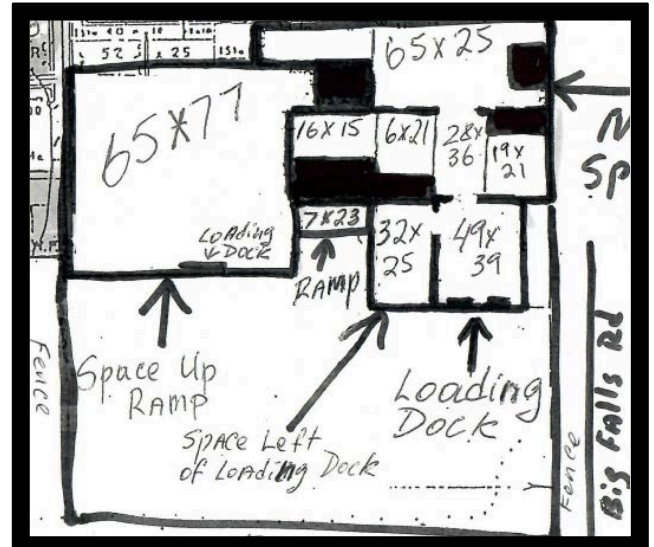 52 x 25
65 x 25
65 x 77
16 x 15
6 x 21
28 x
36
19 x
21
Sp
Loading
Dock
7 x 23
Ramp
32 x
25
49 x
39
Fence
Space Up
Ramp
Loading
Dock
Space Left
of Loading Dock
Fence
Big Falls Rd